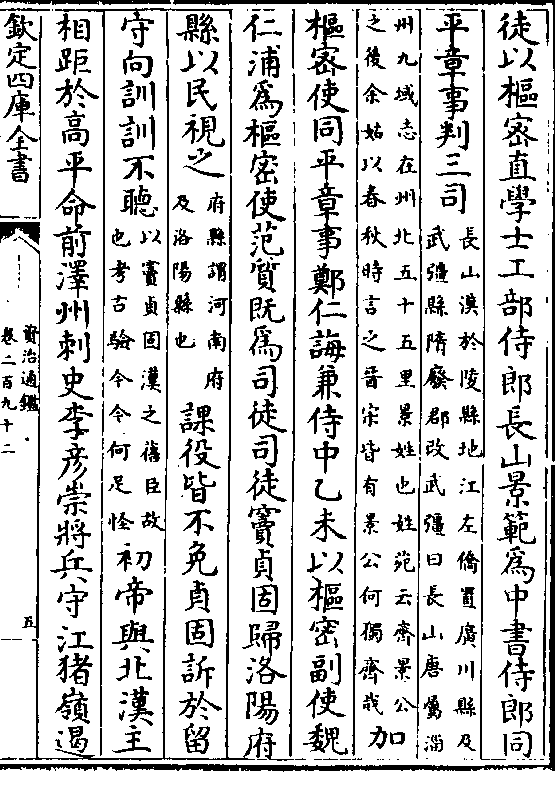 徒以樞密直學士工部侍郎長山景範爲中書侍郎同
平章事判三司長山漢於陵縣地江左僑置廣川縣及武彊縣隋廢郡改武彊曰長山唐屬淄
州九域志在州北五十五里景姓也姓苑云齊景公之後余姑以春秋時言之晉宋皆有景公何獨齊哉加
樞密使同平章事鄭仁誨兼侍中乙未以樞密副使魏
仁浦爲樞密使范質既爲司徒司徒竇貞固歸洛陽府
縣以民視之府縣謂河南府及洛陽縣也課役皆不免貞固訴於留
守向訓訓不聽以竇貞固漢之舊臣故也考古驗今令何足怪初帝與北漢主
相距於高平命前澤州刺史李彦崇將兵守江猪嶺遏
欽定四庫全書
資治通鑑
卷二百九十二
五